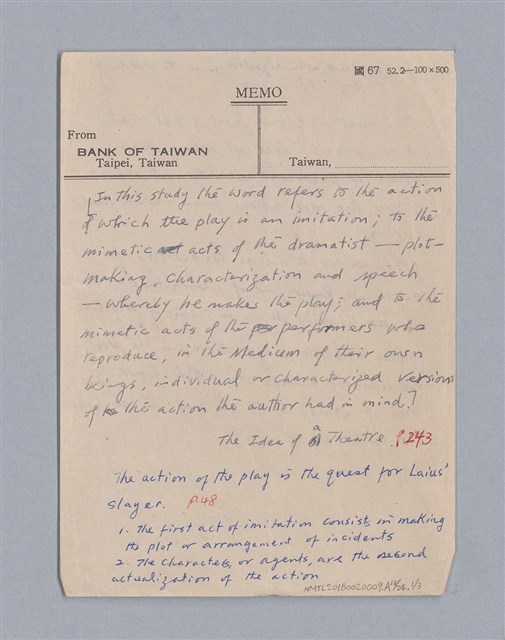 國 67 52.2—100×500
MEMO
From
BANK OF TAIWAN
Taipei, Taiwan
Taiwan,
[In this study the word refers to the action
of which the play is an imitation; to the
mimetic acts of the dramatist — plot-
making, characterization and speech
— whereby he makes the play; and to the
mimetic acts of the performers who
reproduce, in the medium of their own
beings, individual or characterized versions
of the action the author had in mind.]
The Idea of a Theatre P.243
The action of the play is the quest for Laius'
slayer. P.48
1. The first act of imitation consists in making
the plot or arrangement of incidents
2. The characters, or agents, are the second
actualization of the action
NMTL20180020009.A19/24.1/3